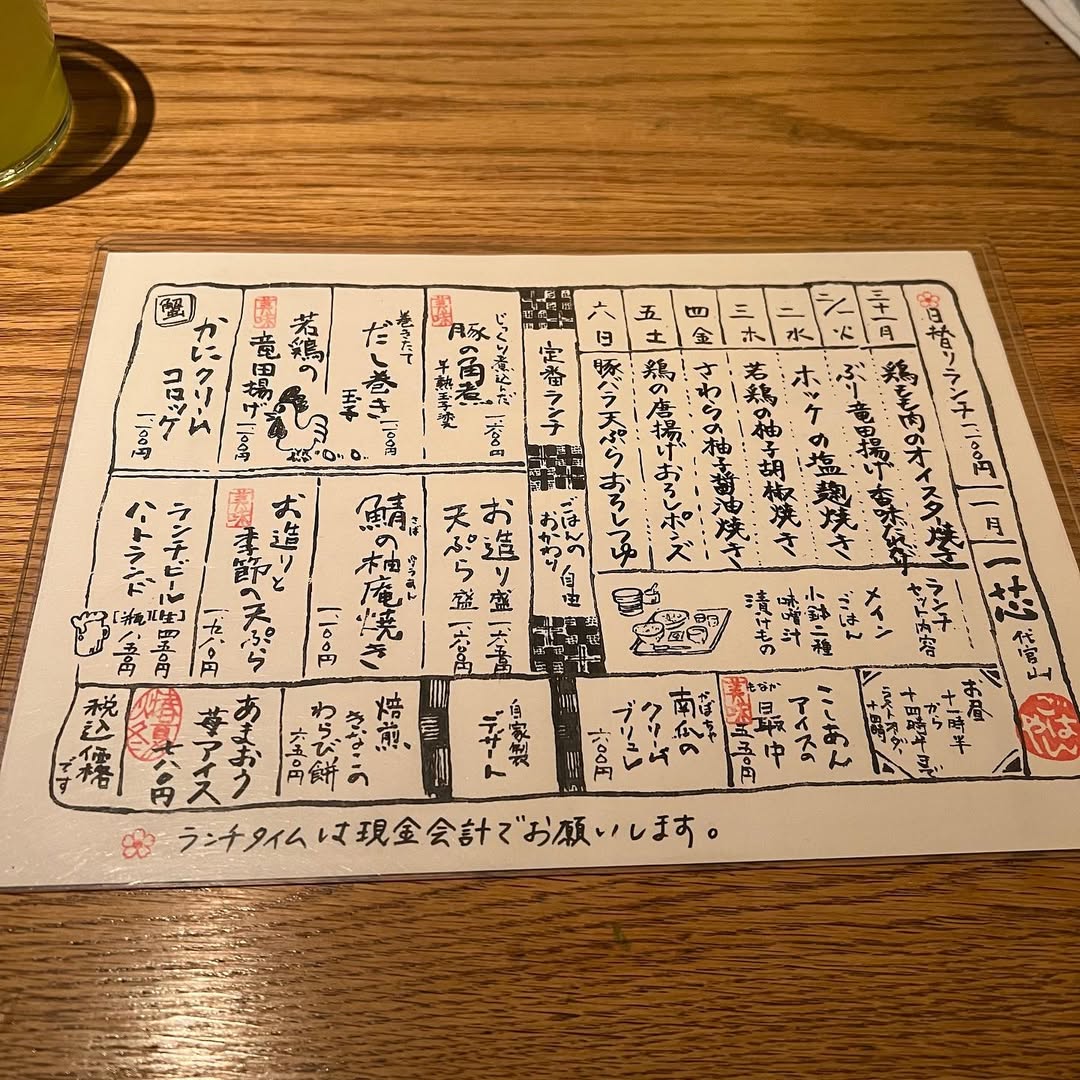 日替りランチ 一一〇〇円
一月
一芯
代官山
ごはんやさん
三十一月
鶏モモ肉のオイスター焼き
二/一火
ぶり竜田揚げ
二水
ホッケの塩麹焼き
三木
若鶏の柚子胡椒焼き
四金
さわらの柚子醤油焼き
五土
鶏の唐揚げおろしポンズ
六日
豚バラ天ぷらおろしつゆ
ランチ
セット内容
メイン
ごはん
小鉢二種
味噌汁
漬けもの
定番ランチ
ごはんの
おかわり
自由
じっくり煮込んだ
豚の角煮
半熟玉子添
巻きたて
だし巻き
玉子
一一〇〇円
若鶏の
竜田揚げ
一一〇〇円
蟹
かにクリーム
コロッケ
一一〇〇円
お造り盛 一六五〇円
天ぷら盛 一六〇〇円
鯖の柚庵焼き
さば ゆうあん
一一〇〇円
お造りと
季節の天ぷら
ランチビール[生]四五〇円
ハートランド[瓶]八五〇円
お昼
十一時半
から
十四時半まで
ラストオーダー
十四時
こしあん
アイスの
最中
もなか
五五〇円
かぼちゃ
南瓜の
クリーム
ブリュレ
六〇〇円
自家製
デザート
焙煎
きなこの
わらび餅
六五〇円
あまおう
苺アイス
七八〇円
税込価格
です
ランチタイムは現金会計でお願いします。